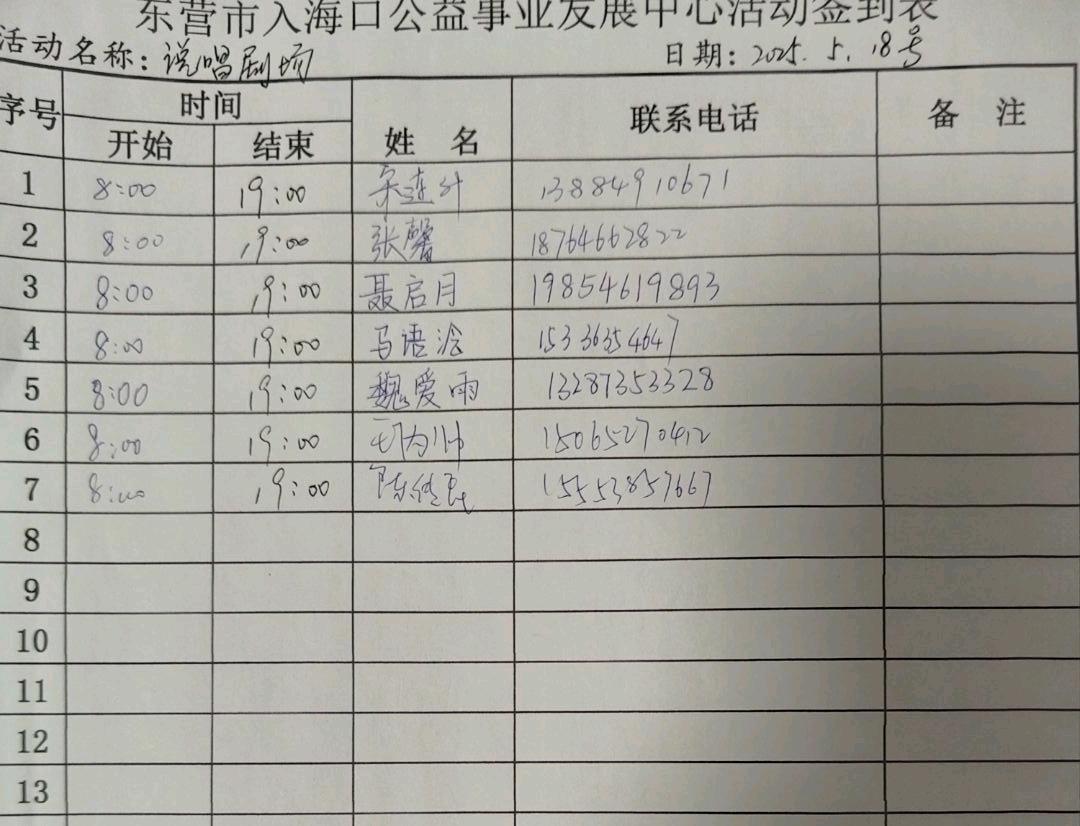 东营市入海口公益事业发展中心活动签到表
活动名称：说唱剧场 日期：2025.5.18号
序号 时间 姓名 联系电话 备注
开始 结束
1 8:00 19:00 13884910671
2 8:00 19:00 张馨 18764662822
3 8:00 19:00 聂启月 19854619893
4 8:00 19:00 马语涵 15336354647
5 8:00 19:00 魏爱雨 13287353328
6 8:00 19:00 15065270412
7 8:00 19:00 15553857667
8
9
10
11
12
13